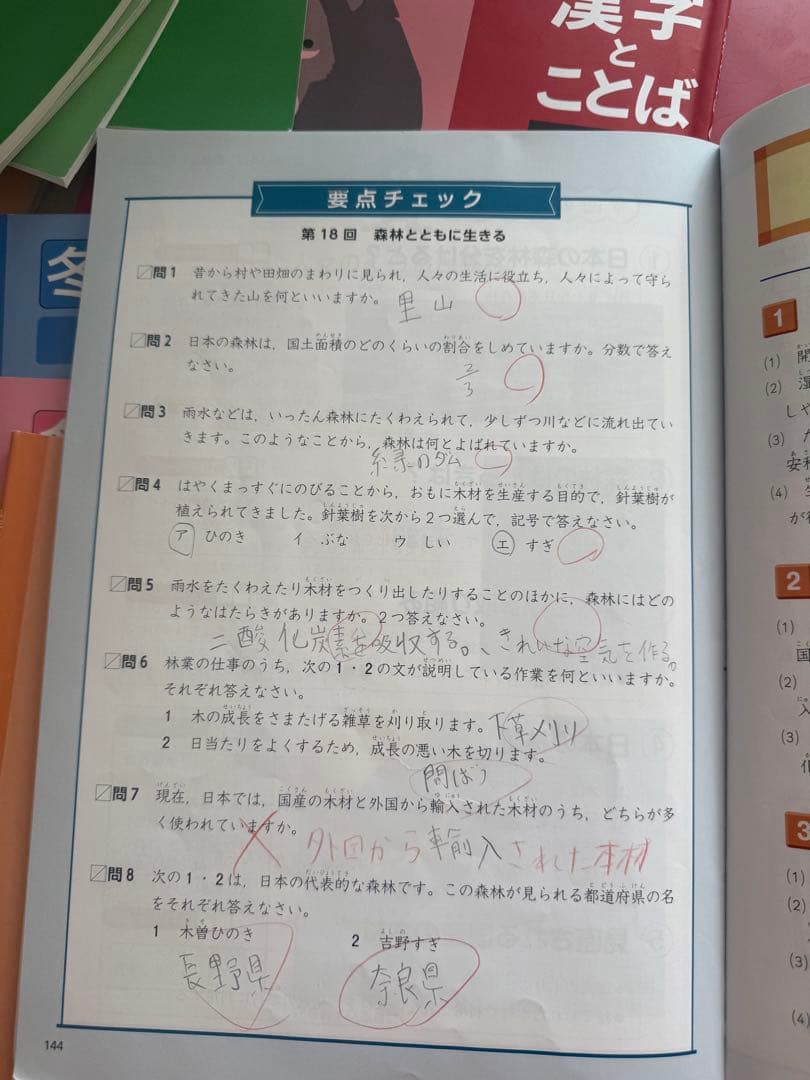 漢字
と
ことば
冬
要点チェック
第18回 森林とともに生きる
問1 昔から村や田畑のまわりに見られ，人々の生活に役立ち，人々によって守ら
れてきた山を何といいますか。
里山
問2 日本の森林は，国土面積のどのくらいの割合をしめていますか。分数で答え
なさい。
2/3
問3 雨水などは，いったん森林にたくわえられて，少しずつ川などに流れ出てい
きます。このようなことから，森林は何とよばれていますか。
緑のダム
問4 はやくまっすぐにのびることから，おもに木材を生産する目的で，針葉樹が
植えられてきました。針葉樹を次から2つ選んで，記号で答えなさい。
ア ひのき イ ぶな ウ しい エ すぎ
問5 雨水をたくわえたり木材をつくり出したりすることのほかに，森林にはどの
ようなはたらきがありますか。2つ答えなさい。
二酸化炭素を吸収する。、きれいな空気を作る。
問6 林業の仕事のうち，次の1・2の文が説明している作業を何といいますか。
それぞれ答えなさい。
1 木の成長をさまたげる雑草を刈り取ります。 下草刈り
2 日当たりをよくするため，成長の悪い木を切ります。
間ばつ
問7 現在，日本では，国産の木材と外国から輸入された木材のうち，どちらが多
く使われていますか。
外国から輸入された木材
問8 次の1・2は，日本の代表的な森林です。この森林が見られる都道府県の名
をそれぞれ答えなさい。
1 木曽ひのき 2 吉野すぎ
長野県 奈良県
144
1
(1) 開
(2) 湿
しや
(3) た
安積
(4)
が
2
(1)
国
(2)
入
(3)
3
(1)
(2)
(3)
(4)